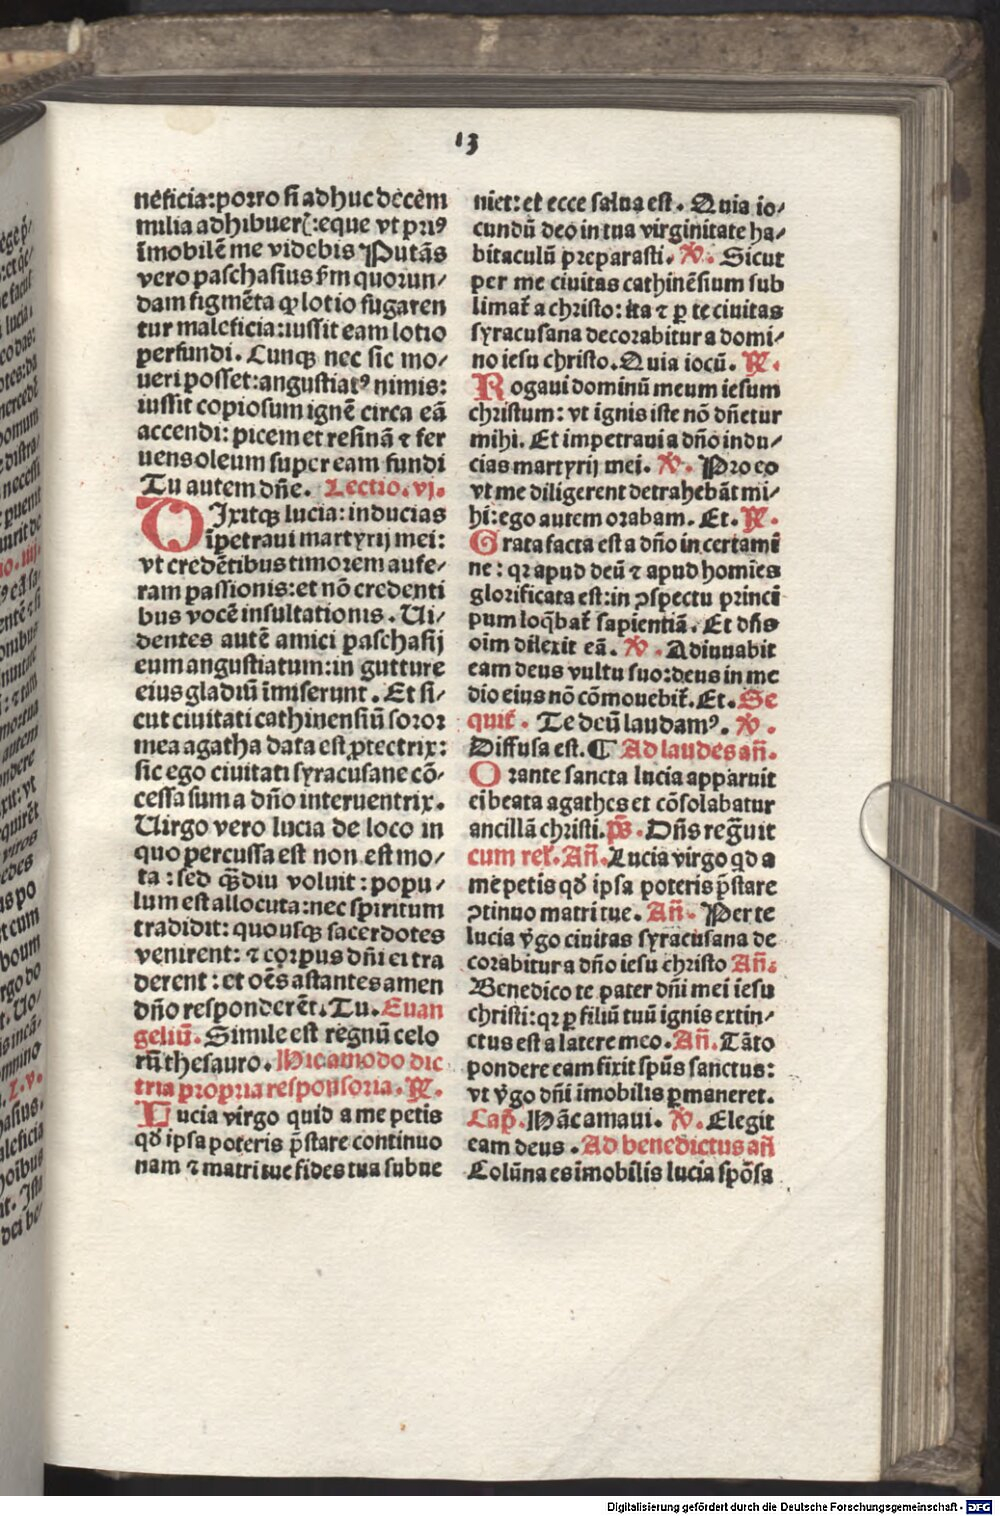 13
neficia: porro si adhuc decem
milia adhibuerĩ: eque vt priꝰ
ĩmobilẽ me videbis Putãs
vero paschasius ẜm quorun/
dam figmẽta ꝙ lotio fugaren
tur maleficia: iussit eam lotio
perfundi. Cunqꝫ nec sic mo/
ueri posset: angustiatꝰ nimis:
iussit copiosum ignẽ circa eã
accendi: picem et resinã ⁊ fer
uens oleum super eam fundi
Tu autem dñe. Lectio. vj.
DIxitqꝫ lucia: inducias
ĩpetraui martyrij mei:
vt credẽtibus timorem aufe/
ram passionis: et nõ credenti
bus vocẽ insultationis. Ui/
dentes autẽ amici paschasij
eum angustiatum: in gutture
eius gladiũ ĩmiserunt. Et si/
cut ciuitati cathinensiũ soror
mea agatha data est ꝓtectrix:
sic ego ciuitati syracusane cõ/
cessa sum a dño interuentrix.
Uirgo vero lucia de loco in
quo percussa est non est mo/
ta: sed qᷓꝫdiu voluit: popu/
lum est allocuta: nec spiritum
tradidit: quousqꝫ sacerdotes
venirent: ⁊ corpus dñi ei tra
derent: et oẽs astantes amen
dño responderẽt. Tu. Euan
geliũ. Simile est regnũ celo
rũ thesauro. Hic amodo dic
tria propria responsoria. ℟.
Lucia virgo quid a me petis
qd̕ ipsa poteris p̃stare continuo
nam ⁊ matri tue fides tua subue
niet: et ecce salua est. Quia io/
cundũ deo in tua virginitate ha/
bitaculũ preparasti. ℣. Sicut
per me ciuitas cathinẽsium sub
limat᷑ a christo: ita ⁊ ꝑ te ciuitas
syracusana decorabitur a domi/
no iesu christo. Quia iocũ. ℟.
Rogaui dominũ meum iesum
christum: vt ignis iste nõ dñetur
mihi. Et impetraui a dño indu/
cias martyrij mei. ℣. Pro eo
vt me diligerent detrahebãt mi/
hi: ego autem orabam. Et. ℟.
Grata facta est a dño in certamĩ
ne: qꝛ apud deũ ⁊ apud homĩes
glorificata est: in ꝯspectu princĩ
pum loq̃bat᷑ sapientiã. Et dñs
oĩm dilexit eã. ℣. Adiuuabit
eam deus vultu suo: deus in me
dio eius nõ cõmouebit᷑. Et. Se
quit᷑. Te deũ laudamꝰ. ℣.
Diffusa est. ¶ Ad laudes añ.
Orante sancta lucia apparuit
ei beata agathes et cõsolabatur
ancillã christi. p̃s. Dñs regᷓuit
cum rel᷑. Añ. Lucia virgo qd a
me petis qd̕ ipsa poteris p̃stare
ꝯtinuo matri tue. Añ. Per te
lucia ṽgo ciuitas syracusana de
corabitur a dño iesu christo Añ.
Benedico te pater dñi mei iesu
christi: qꝛ ꝑ filiũ tuũ ignis extin/
ctus est a latere meo. Añ. Tãto
pondere eam fixit spũs sanctus:
vt ṽgo dñi ĩmobilis ꝑmaneret.
Cap̃. Hãc amaui. ℣. Elegit
eam deus. Ad benedictus añ
Colũna es ĩmobilis lucia spõsa
Digitalisierung gefördert durch die Deutsche Forschungsgemeinschaft - DFG